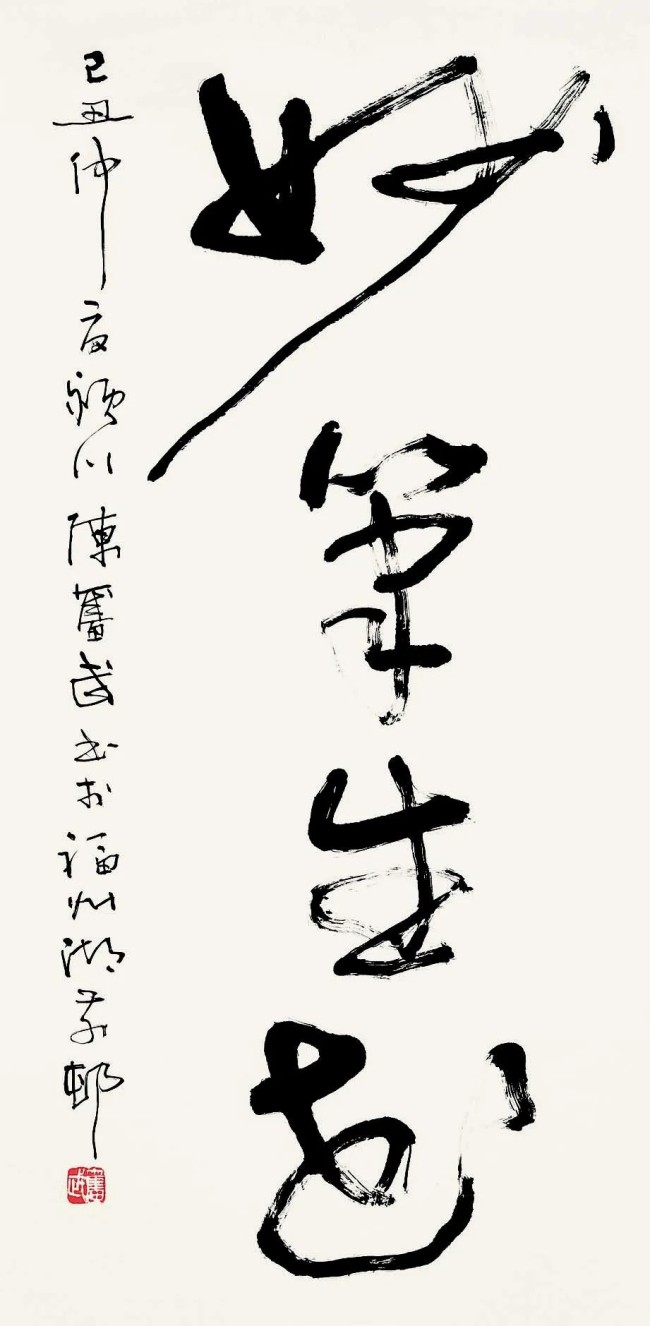 妙筆生花
己丑仲夏潁川陳奮武書於福州湖前邨
奮武